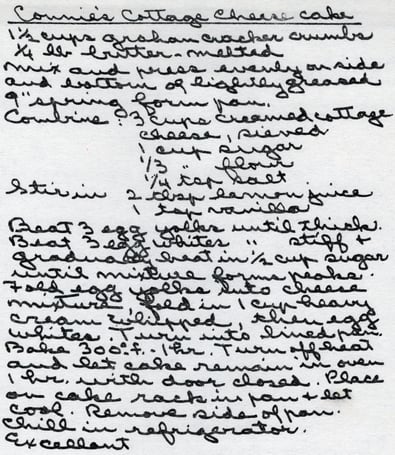 Connie's Cottage Cheese Cake
1½ cups graham cracker crumbs
¼ lb. butter - melted
Mix and press evenly on side
and bottom of lightly greased
9" spring form pan.
Combine: 3 cups creamed cottage
cheese, sieved
1 cup sugar
1/3 " flour
¼ tsp salt
Stir in 2 tbsp lemon juice
1 tsp vanilla
Beat 3 egg yolks until thick.
Beat 3 egg whites " stiff +
gradually beat in ½ cup sugar
until mixture forms peaks
Fold egg yolks into cheese
mixture. Fold in 1 cup heavy
cream whipped, then egg
whites. Turn into lined pan.
Bake 300°F. - 1 hr. Turn off heat
and let cake remain in oven
1 hr. with door closed. Place
on cake rack in pan + let
cool. Remove side of pan.
Chill in refrigerator.
Excellant